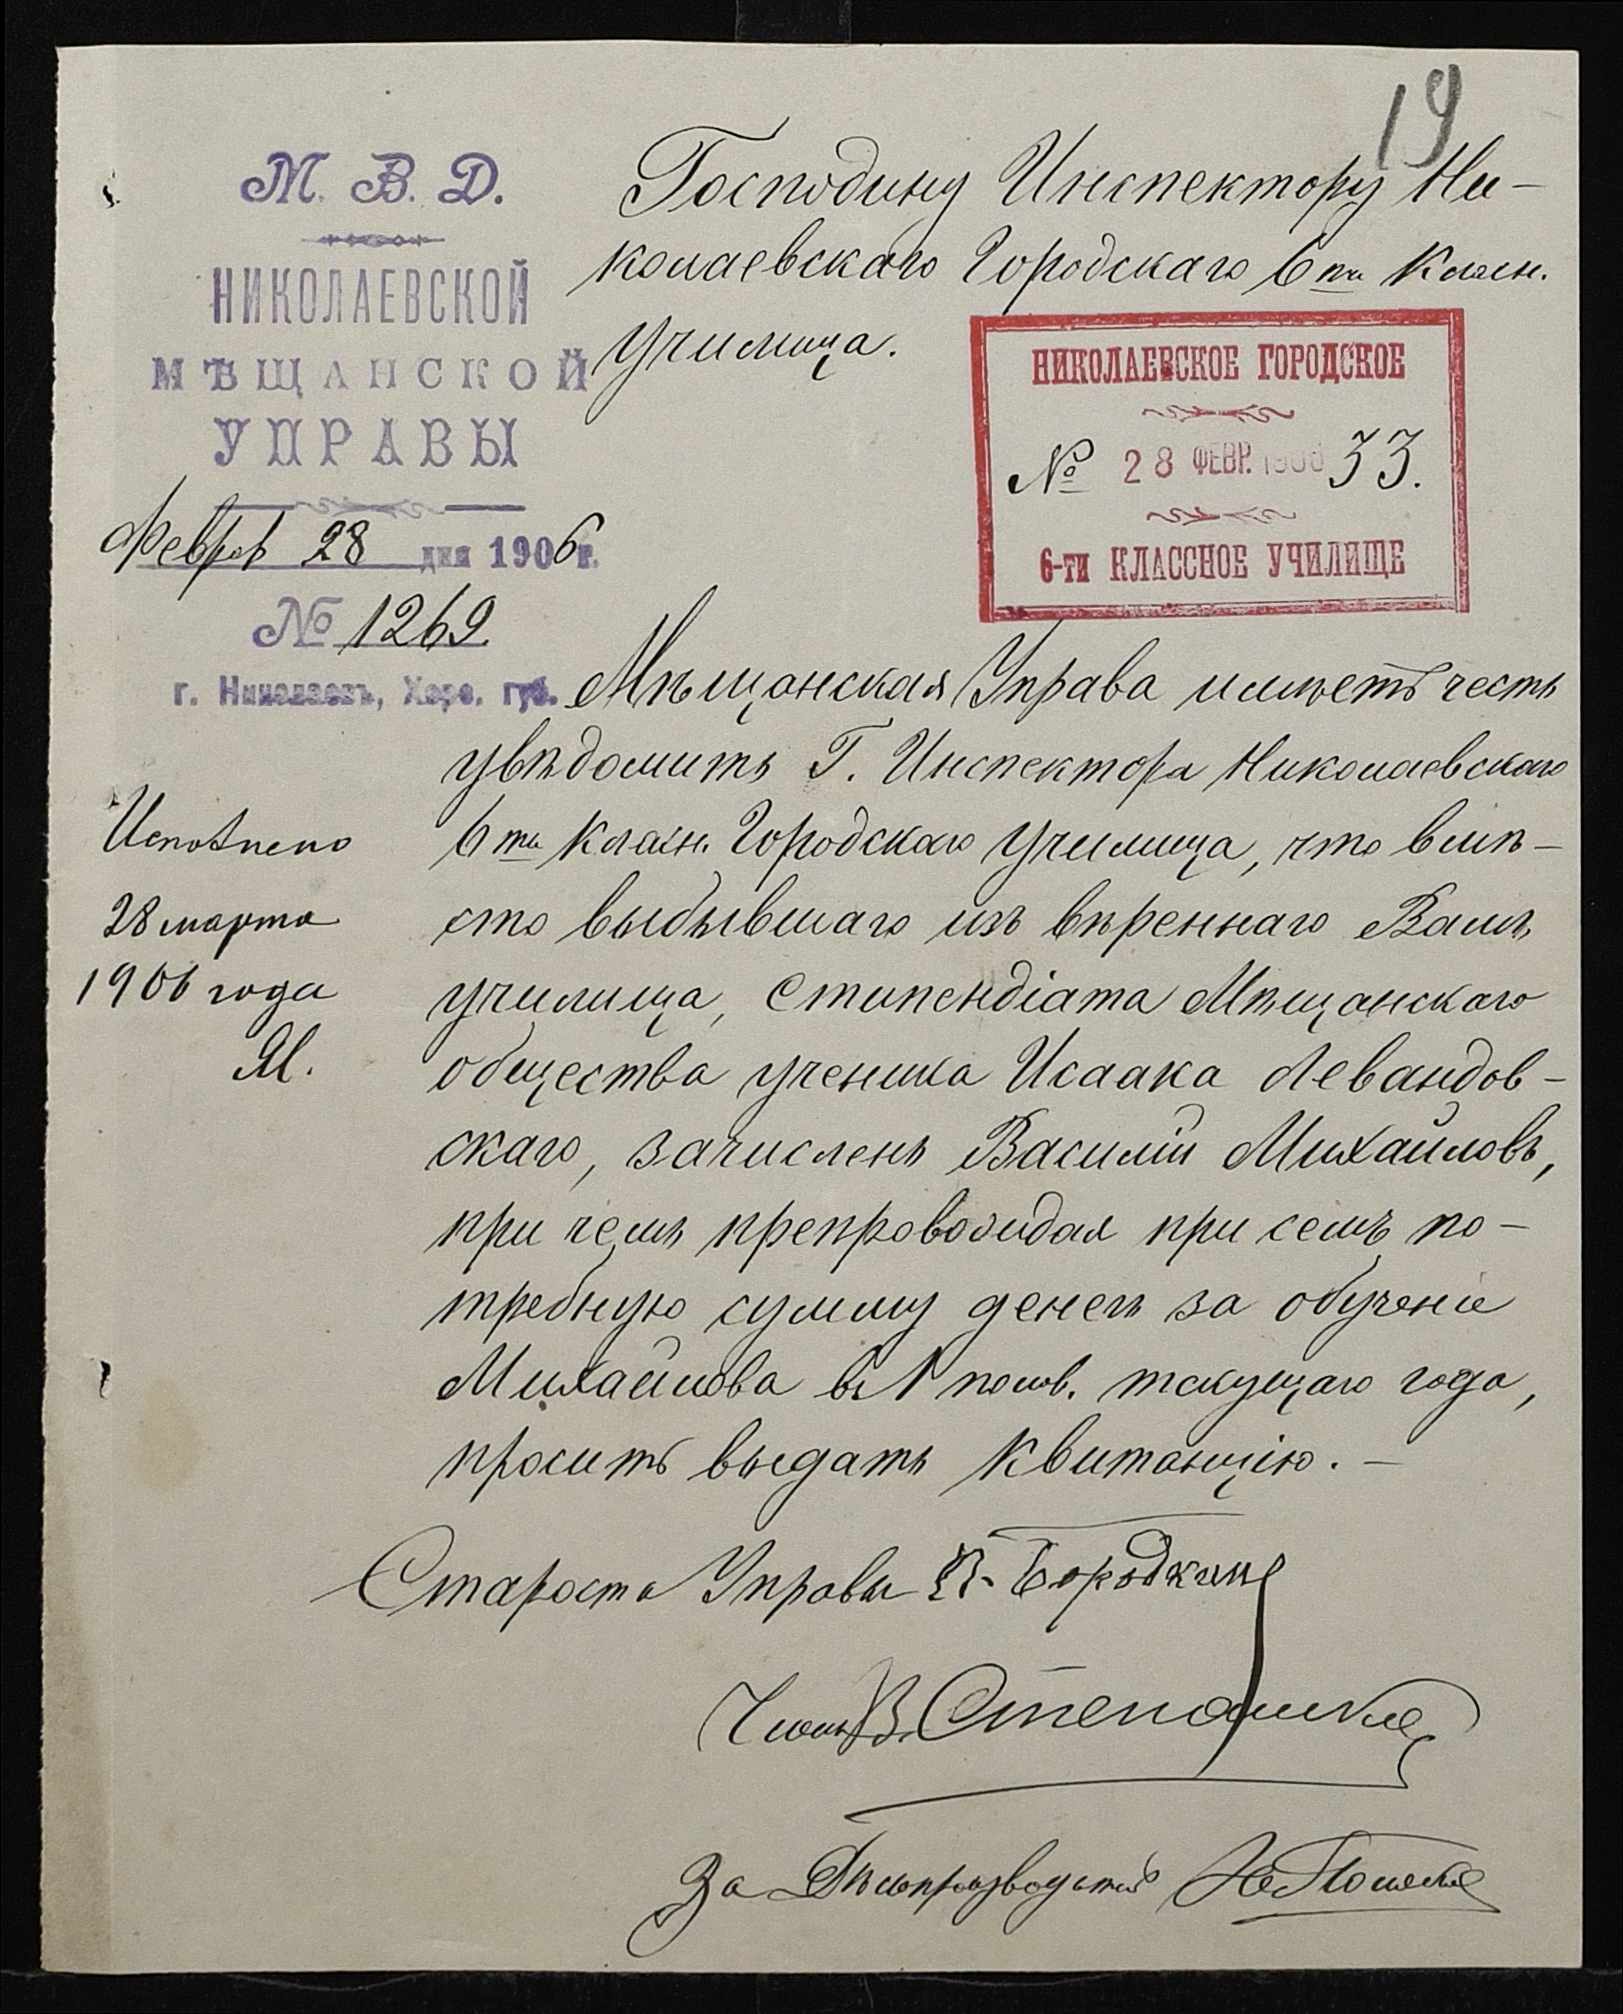 19
М. В. Д.
НИКОЛАЕВСКОЙ
МѢЩАНСКОЙ
УПРАВЫ
Феврал 28 дня 1906 г.
№ 1269.
г. Николаевъ, Херс. губ.
Господину Инспектору Ни-
колаевскаго Городскаго 6ти Класн.
Училища.
НИКОЛАЕВСКОЕ ГОРОДСКОЕ
№ 28 ФЕВР. 1906 33.
6-ТИ КЛАССНОЕ УЧИЛИЩЕ
Мѣщанская Управа имѣетъ честь
увѣдомить Г. Инспектора Николаевскаго
6ти Класн. Городскаго Училища, что вмѣ-
сто выбывшаго изъ ввѣреннаго Вамъ
училища, Стипендіата Мѣщанскаго
общества ученика Исаака Левандов-
скаго, зачисленъ Василій Михайловъ,
при чемъ препровождая при семъ по-
требную сумму денегъ за обученіе
Михайлова въ 1 полов. текущаго года,
проситъ выдать квитанцію. –
Исполнено
28 марта
1906 года
Староста Управы В. Бородкинъ
Членъ В. Степ
За Дѣлопроизводителя